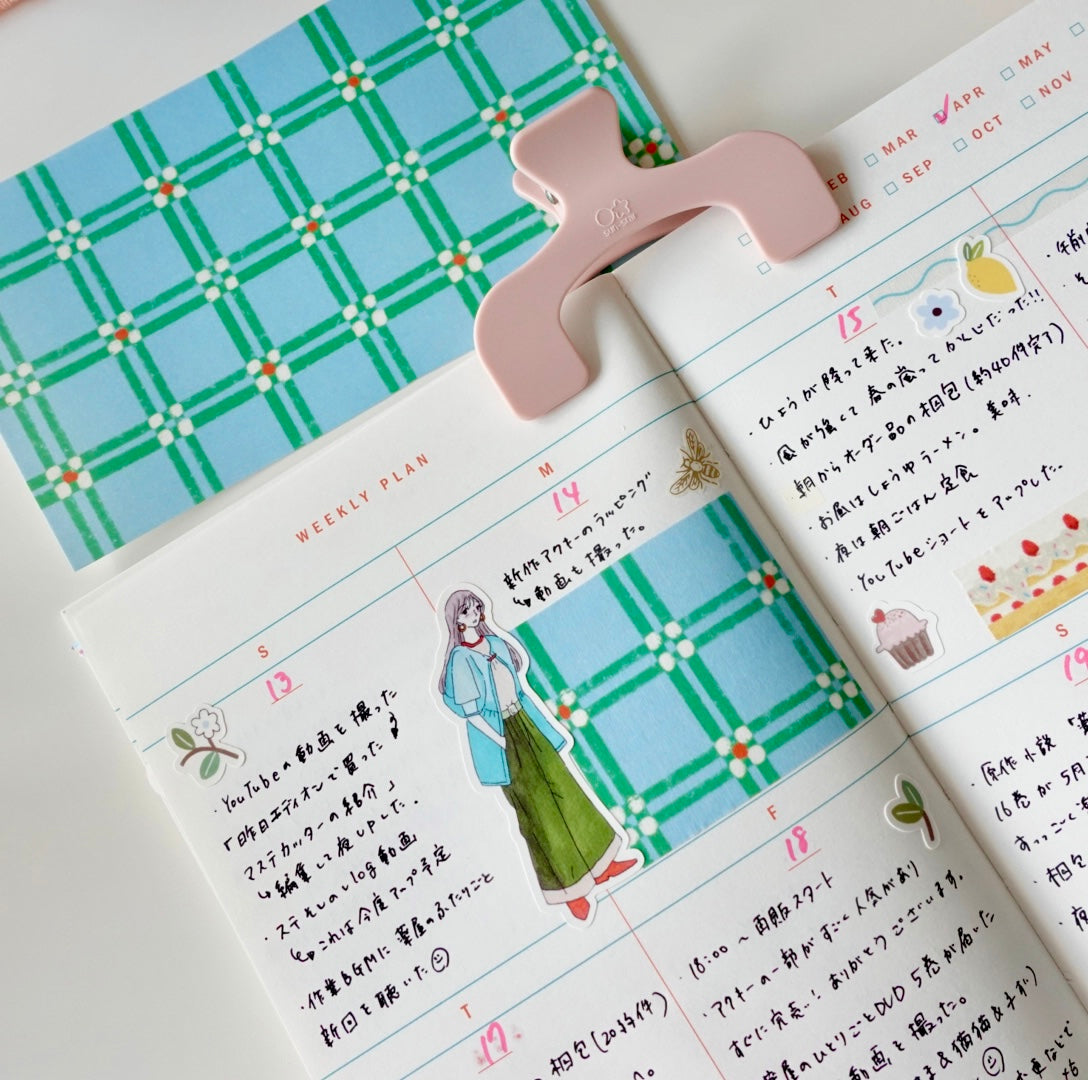 EB
MAR
APR
MAY
AUG
SEP
OCT
NOV
sun-star
WEEKLY PLAN
S
13
・YouTubeの動画を撮った
「昨日エディオンで買った
マステカッターの紹介」
↳編集して夜UPした。
・ステそしのvlog動画
↳これは今度アップ予定
・作業BGMに薬屋のふたりごと
新回を聴いた
M
14
新作アクキーのラッピング
↳動画も撮った。
T
15
・ひょうが降って来た。
・風が強くて春の嵐って かんじだった!!
・朝からオーダー品の梱包(約40件完了)
・お昼はしょうゆラーメン。美味.
・夜は朝ごはん定食
・YouTubeショートをアップした。
・午前
・そ
T
17
梱包(20数件)
F
18
・18:00〜再販スタート
・アクキーの一部がすごく人気があり
すぐに完売!ありがとうございます。
屋のひとりごとDVD 5巻が届いた
動画を撮った。
S
19
・原作小説「薬
16巻が5月
すっごく
・梱包
・夜